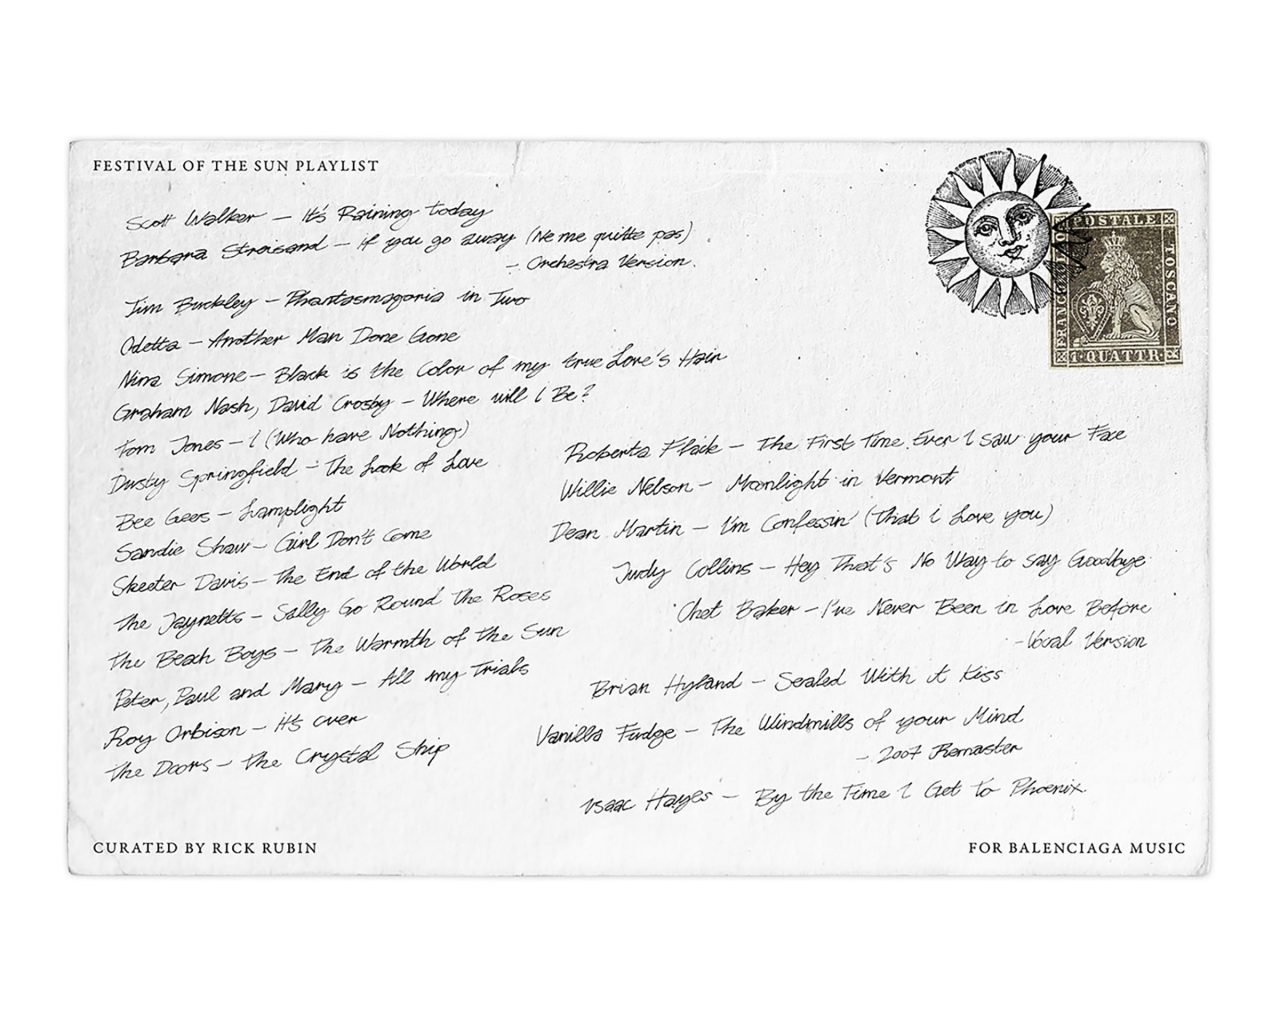 FESTIVAL OF THE SUN PLAYLIST
Scott Walker – It's Raining today
Barbara Streisand – if you go away (Ne me quitte pas)
– Orchestra Version.
Tim Buckley – Phantasmagoria in Two
Odetta – Another Man Done Gone
Nina Simone – Black is the Color of my true Love's Hair
Graham Nash, David Crosby – Where will I Be?
Tom Jones – I (Who have Nothing)
Dusty Springfield – The Look of Love
Bee Gees – Lamplight
Sandie Shaw – Girl Don't Come
Skeeter Davis – The End of the World
The Jaynetts – Sally Go Round the Roses
The Beach Boys – The Warmth of the Sun
Peter, Paul and Mary – All my Trials
Roy Orbison – it's over
The Doors – The Crystal Ship
Roberta Flack – The First Time Ever I Saw your Face
Willie Nelson – Moonlight in Vermont
Dean Martin – I'm Confessin' (That i Love you)
Judy Collins – Hey That's No Way to say Goodbye
Chet Baker – I've Never Been in Love Before
– Vocal Version
Brian Hyland – Sealed With a Kiss
Vanilla Fudge – The Windmills of your Mind
– 2007 Remaster
Isaac Hayes – By the Time I Get to Phoenix.
CURATED BY RICK RUBIN
FOR BALENCIAGA MUSIC
FRANCOBOLLO
POSTALE
TOSCANO
1 QUATTR.